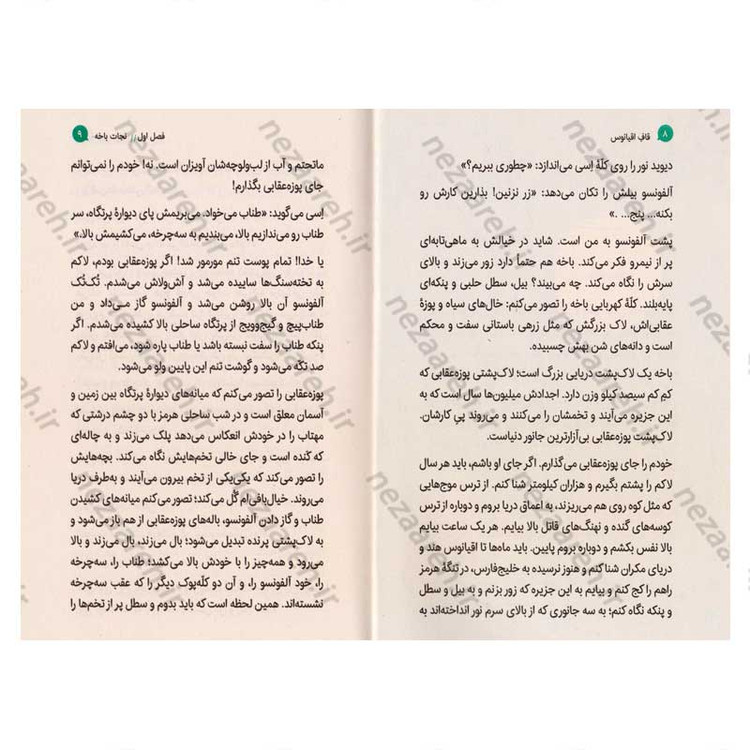 ۸ قاف اقیانوس
دیوید نور را روی کلّهٔ اِسی می‌اندازد: «چطوری ببریم؟»
آلفونسو بیلش را تکان می‌دهد: «زر نزنین! بذارین کارش رو
بکنه... پنج... .»
پشت آلفونسو به من است. شاید در خیالش به ماهی‌تابه‌ای
پر از نیمرو فکر می‌کند. باخه هم حتماً دارد زور می‌زند و بالای
سرش را نگاه می‌کند. چه می‌بیند؟ بیل، سطل حلبی و پنکه‌ای
پایه‌بلند. کلّهٔ کهربایی باخه را تصور می‌کنم: خال‌های سیاه و پوزهٔ
عقابی‌اش، لاک بزرگش که مثل زرهی باستانی سفت و محکم
است و دانه‌های شن بهش چسبیده.
باخه یک لاک‌پشت دریایی بزرگ است؛ لاک‌پشتی پوزه‌عقابی که
کمِ کم سیصد کیلو وزن دارد. اجدادش میلیون‌ها سال است که به
این جزیره می‌آیند و تخمشان را می‌کنند و می‌روند پیِ کارشان.
لاک‌پشت پوزه‌عقابی بی‌آزارترین جانور دنیاست.
خودم را جای پوزه‌عقابی می‌گذارم. اگر جای او باشم، باید هر سال
لاکم را پشتم بگیرم و هزاران کیلومتر شنا کنم. از ترس موج‌هایی
که مثل کوه روی هم می‌ریزند، به اعماق دریا بروم و دوباره از ترس
کوسه‌های گنده و نهنگ‌های قاتل بالا بیایم. هر یک ساعت بیایم
بالا نفس بکشم و دوباره بروم پایین. باید ماه‌ها تا اقیانوس هند و
دریای مکران شنا کنم و هنوز نرسیده به خلیج‌فارس، در تنگهٔ هرمز
راهم را کج کنم و بیایم به این جزیره که زور بزنم و به بیل و سطل
و پنکه نگاه کنم؛ به سه جانوری که از بالای سرم نور انداخته‌اند به
فصل اول // نجات باخه ۹
ماتحتم و آب از لب‌ولوچه‌شان آویزان است. نه! خودم را نمی‌توانم
جای پوزه‌عقابی بگذارم!
اِسی می‌گوید: «طناب می‌خواد. می‌بریمش پای دیوارهٔ پرتگاه، سر
طناب رو می‌ندازیم بالا، می‌بندیم به سه‌چرخه، می‌کشیمش بالا.»
یا خدا! تمام پوست تنم مورمور شد! اگر پوزه‌عقابی بودم، لاکم
به تخته‌سنگ‌ها ساییده می‌شد و آش‌ولاش می‌شدم. تُک‌تُک
آلفونسو آن بالا روشن می‌شد و آلفونسو گاز می‌داد و من
طناب‌پیچ و گیج‌وویج از پرتگاه ساحلی بالا کشیده می‌شدم. اگر
پنکه طناب را سفت نبسته باشد یا طناب پاره شود، می‌افتم و لاکم
صد تکّه می‌شود و گوشت تنم این پایین ولو می‌شود.
پوزه‌عقابی را تصور می‌کنم که میانه‌های دیوارهٔ پرتگاه بین زمین و
آسمان معلق است و در شب ساحلی هرمز با دو چشم درشتی که
مهتاب را در خودش انعکاس می‌دهد پلک می‌زند و به چاله‌ای
که کَنده است و جای خالی تخم‌هایش نگاه می‌کند. بچه‌هایش
را تصور می‌کند که یکی‌یکی از تخم بیرون می‌آیند و به‌طرف دریا
می‌روند. خیال‌بافی‌ام گُل می‌کند؛ تصور می‌کنم میانه‌های کشیدن
طناب و گاز دادن آلفونسو، باله‌های پوزه‌عقابی از هم باز می‌شود و
به لاک‌پشتی پرنده تبدیل می‌شود؛ بال می‌زند، بال می‌زند و بالا
می‌رود و همه‌چیز را با خودش بالا می‌کشد؛ طناب را، سه‌چرخه
را، خود آلفونسو را، و آن دو کلّه‌پوک دیگر را که عقب سه‌چرخه
نشسته‌اند. همین لحظه است که باید بدوم و سطل پر از تخم‌ها را
nezaareh.ir